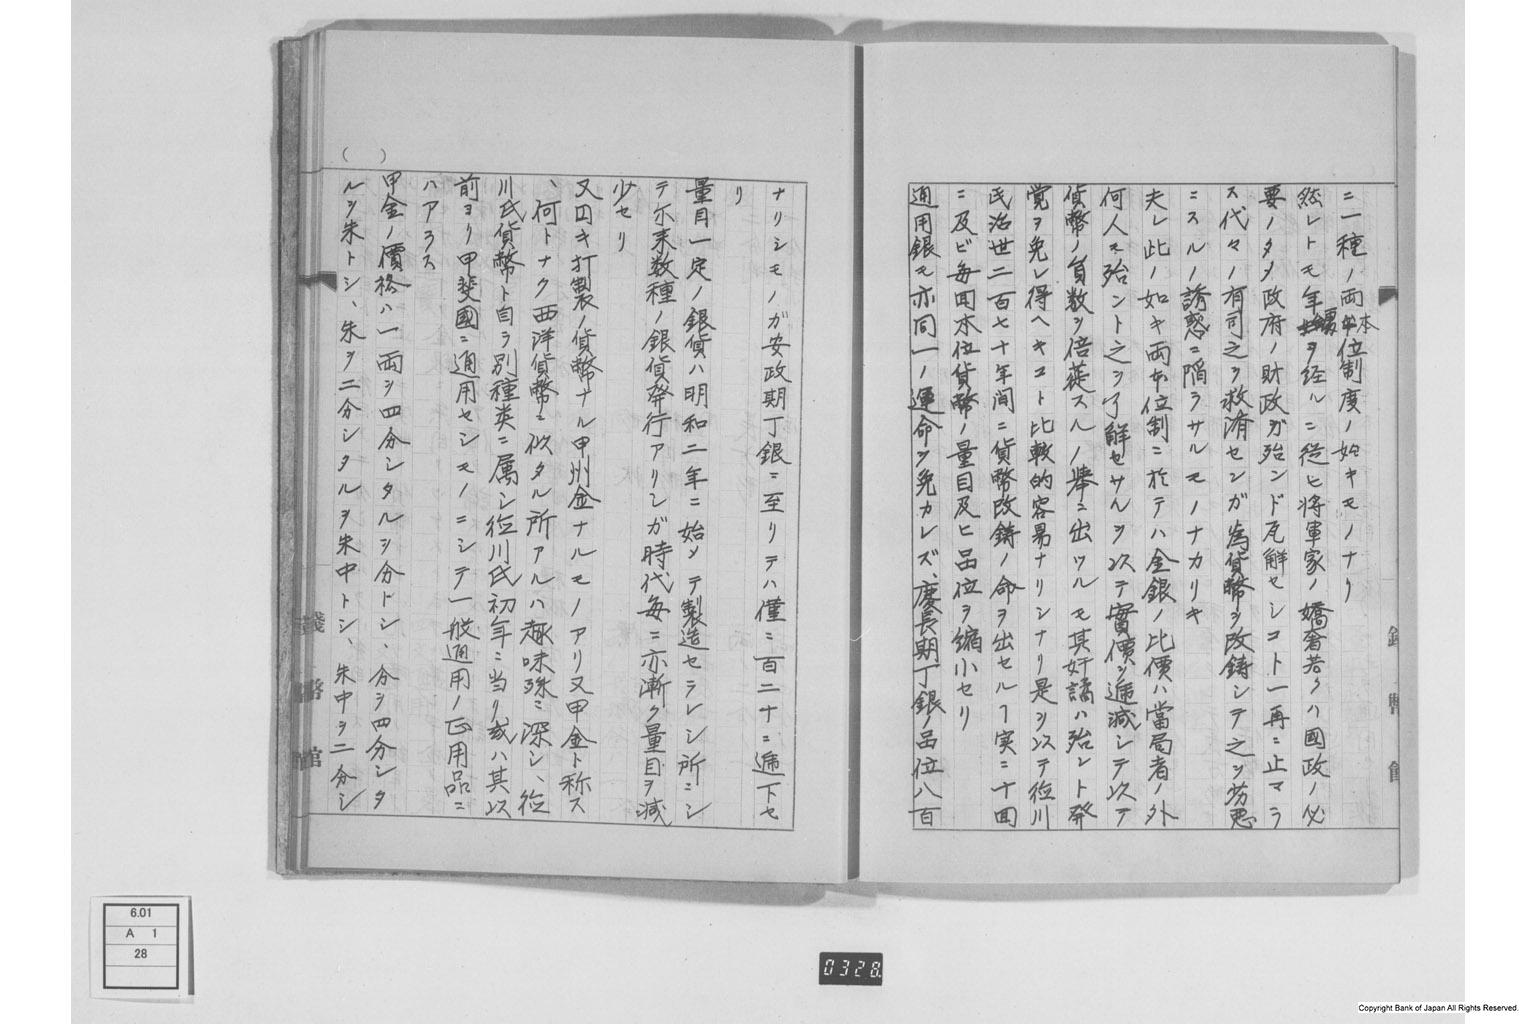 ニ一種ノ両本位制度ノ如キモノナリ
然レトモ年處ヲ経ルニ従ヒ将軍家ノ驕奢若クハ國政ノ必
要ノタメ政府ノ財政ガ殆ンド瓦解セシコト一再ニ止マラ
ス代々ノ有司之ヲ救済センガ為貨幣ヲ改鋳シテ之ヲ劣悪
ニスルノ誘惑ニ陥ラサルモノナカリキ
夫レ此ノ如キ両本位制ニ於テハ金銀ノ比價ハ當局者ノ外
何人モ殆ント之ヲ了解セサルヲ以テ實價ヲ逓減シテ以テ
貨幣ノ負数ヲ倍蓰スルノ挙ニ出ツルモ其奸譎ハ殆ント発
覚ヲ免レ得ヘキコト比較的容易ナリシナリ是ヲ以テ徳川
氏治世二百七十年間ニ貨幣改鋳ノ命ヲ出セルヿ実ニ十回
ニ及ビ毎回本位貨幣ノ量目及ヒ品位ヲ縮小セリ
通用銀モ亦同一ノ運命ヲ免カレズ、慶長期丁銀ノ品位八百
ナリシモノガ安政期丁銀ニ至リテハ僅ニ百二十ニ逓下セ
リ
量目一定ノ銀貨ハ明和二年ニ始メテ製造セラレシ所ニシ
テ亦来数種ノ銀貨発行アリシガ時代毎ニ亦漸ク量目ヲ減
少セリ
又円キ打製ノ貨幣ナル甲州金ナルモノアリ又甲金ト称ス
、何トナク西洋貨幣ニ似タル所アルハ趣味殊ニ深シ、徳
川氏貨幣ト自ラ別種类ニ属シ徳川氏初年ニ当リ或ハ其以
前ヨリ甲斐國ニ通用セシモノニシテ一般通用ノ正用品ニ
ハアラス
( )
甲金ノ價格ハ一両ヲ四分シタルヲ分トシ、分ヲ四分シタ
ルヲ朱トシ、朱ヲ二分シタルヲ朱中トシ、朱中ヲ二分シ
錢幣館
6.01
A 1
28
0328.
Copyright Bank of Japan All Rights Reserved.